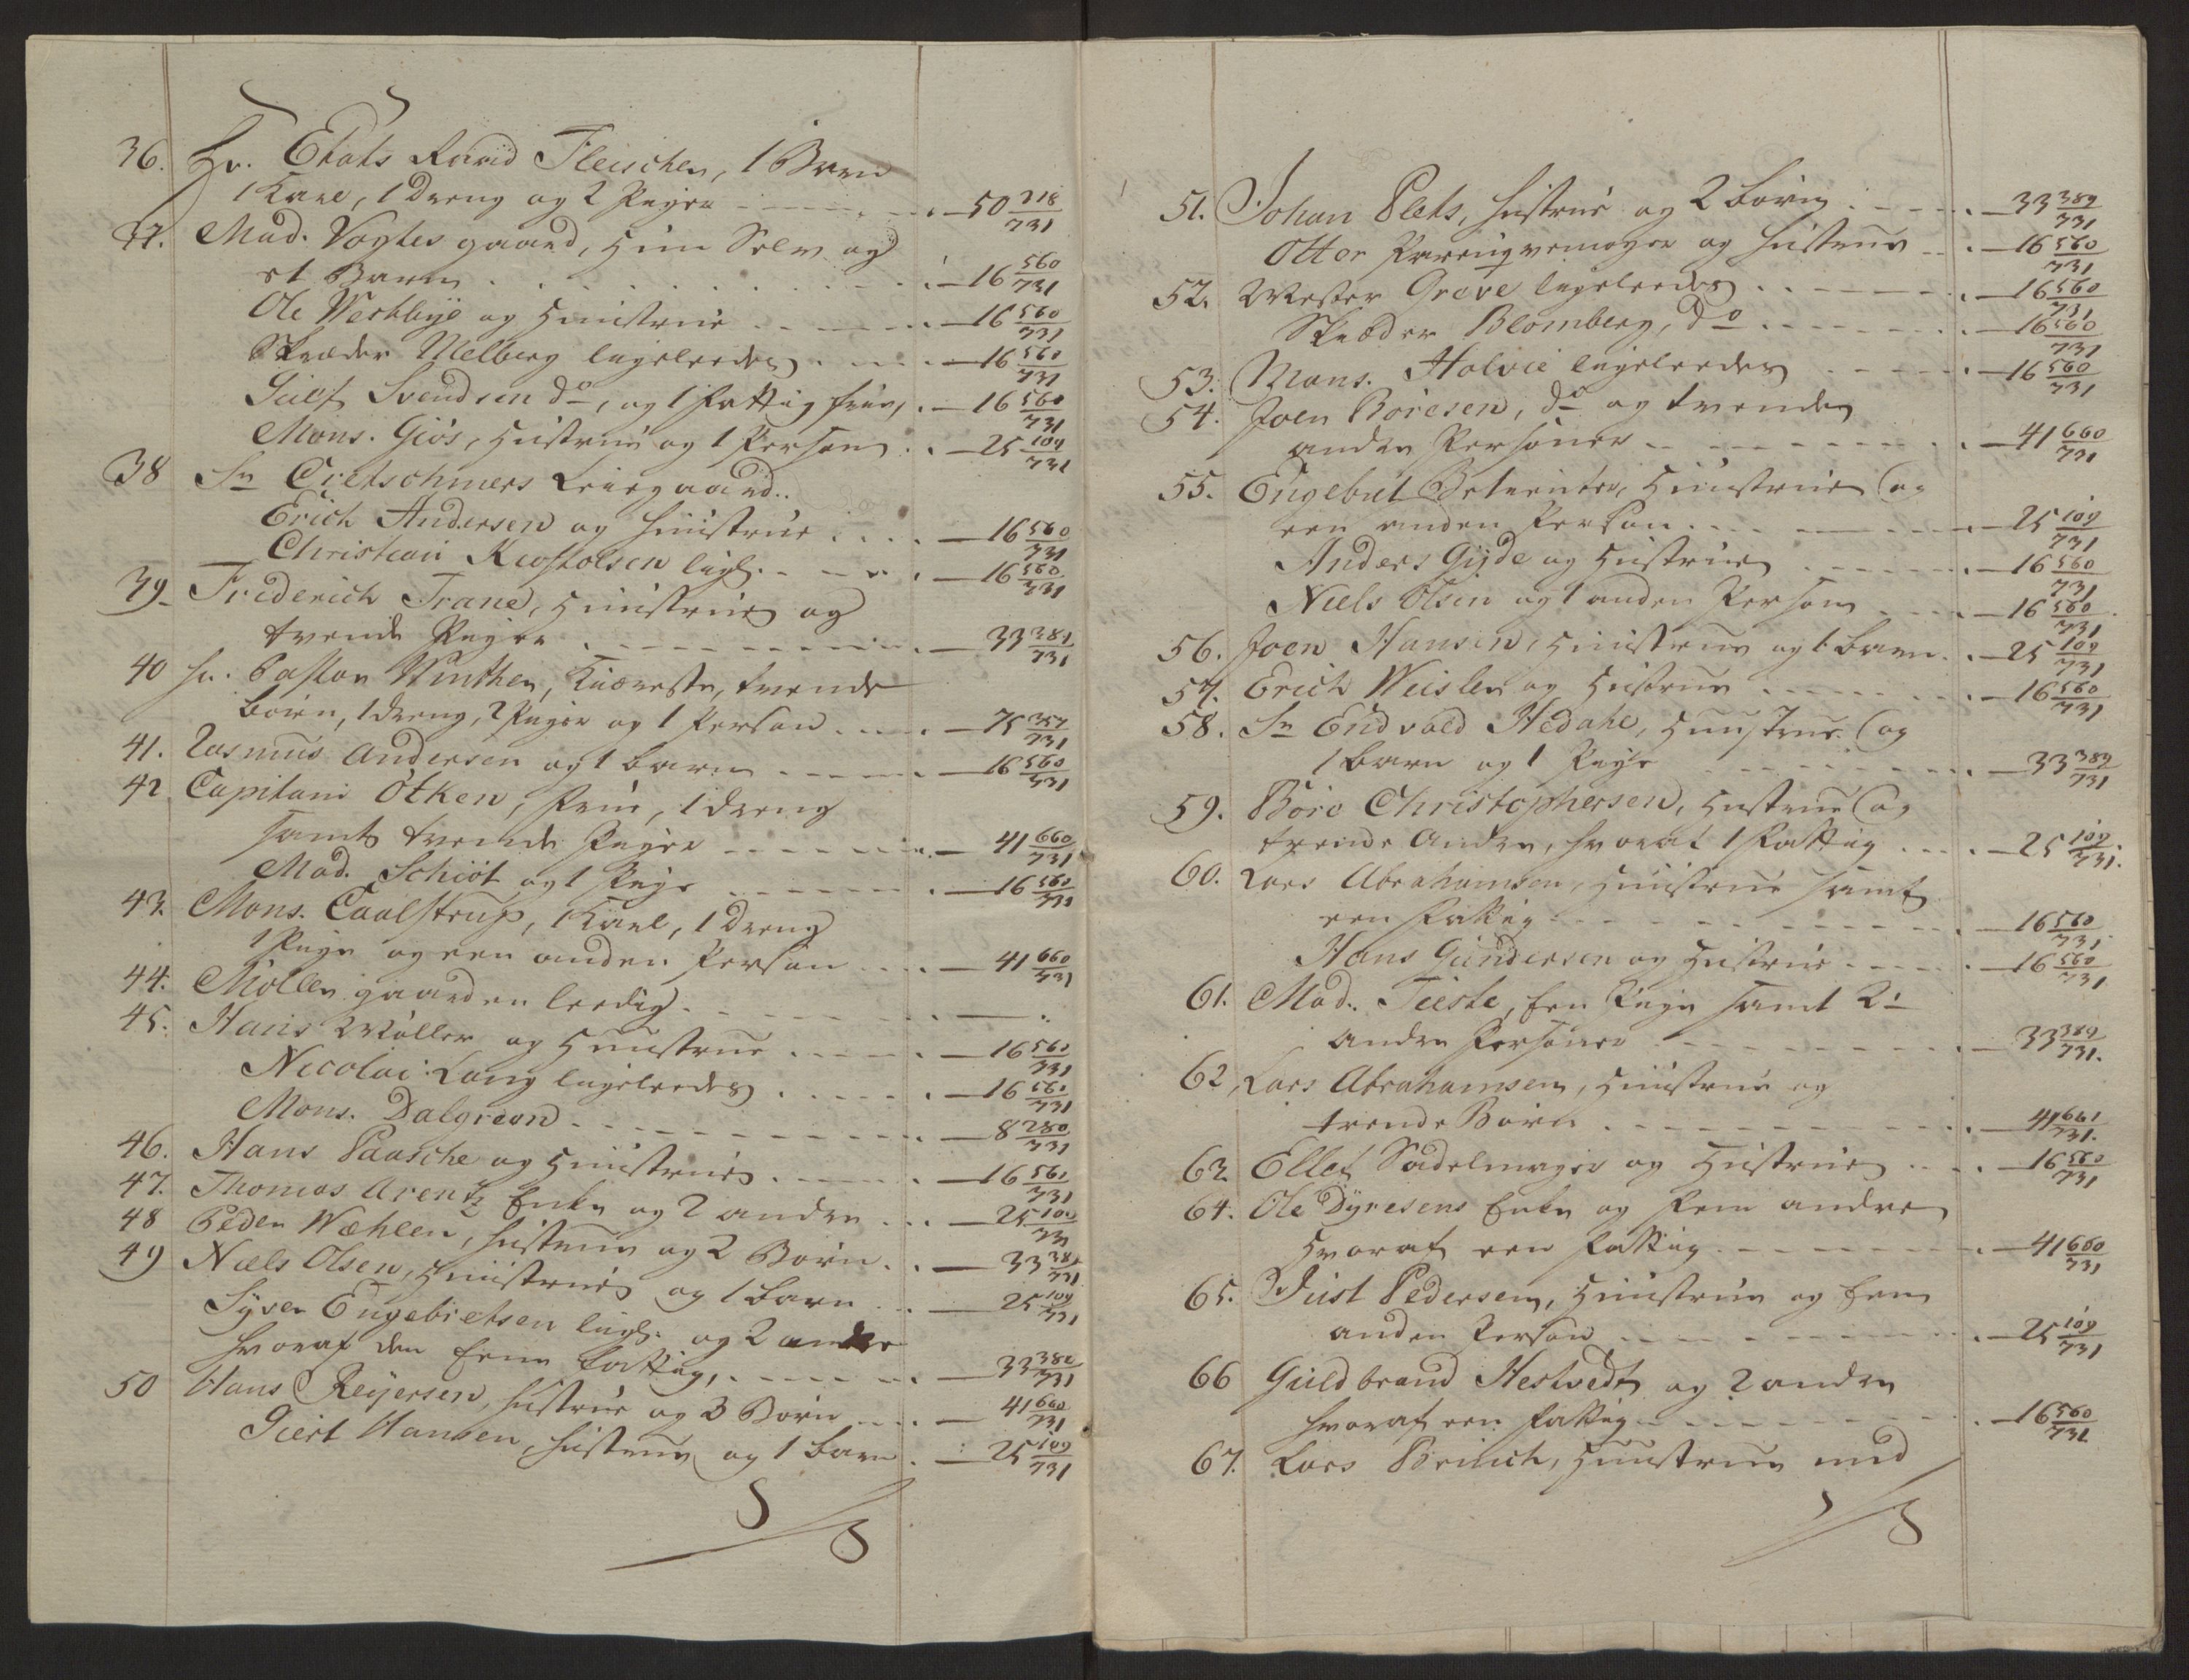 36. Hr. Etats Raad Fleischer, 1 Barn
1 Karl, 1 Dreng og 2 Piger - - - 50 218/731
37. Mad. Vogtes gaard, Hun Selv og
et Barn . . . . . 16 560/731
Ole Westbÿe og Huustrue - - - 16 560/731
Skræder Melberg ligeleedes - - - 16 560/731
Gulf Svendsen do, og 1 fattig - 16 560/731
Mons. Giös, Hustrue og 1 Person . - 25 109/731
38 Sr Cretschmers Leiegaard..
Erich Andersen og Huustrue . . . . - 16 560/731
Christian Kiostolsen ligl. - - - 16 560/731
39. Friderich Trane, Huustrue og
tvende Piger - - - - - 33 389/731
40 Hr. Pastor Winther, Kiæreste, tvende
börn, 1 dreng, 2 Piger og 1 Person . - - 75 357/731
41. Rasmus Andersen og 1 barn - - - 16 560/731
42 Capitain Otken, Frue, 1 dreng
samt tvende Piger - - - - 41 660/731
Mad. Schiöt og 1 Pige - - - - 16 560/731
43. Mons. Caalstrup, 1 Karl, 1 dreng
1 Pige og een anden Person - - - 41 660/731
44. Möllergaarden leedig - - - - -
45. Hans Möller og Huustrue - - - - 16 560/731
Nicolai Lang ligeleedes . . . . . - 16 560/731
Mons. Dalgreen - - - - - 8 280/731
46. Hans Paasche og Huustrue . - - - 16 560/731
47. Thomas Arentz Enke og 2 andre . . . - 25 109/731
48 Peder Wæhlen, Hustrue og 2 Börn . . - 33 389/731
49 Niels Olsen, Huustrue og 1 barn . . - 25 109/731
Syver Engebretsen ligl. og 2 andre
hvoraf den Eene fattig, . - - - - 33 389/731
50 Hans Reÿersen, Hustrue og 3 Börn - - - 41 660/731
Giert Hansen, Hustrue og 1 barn . - 25 109/731
51. Johan Plets, Hustrue og 2 börn . - - - 33 389/731
Otter og Hustrue - - - 16 560/731
52. Mester Greve ligeleedes . . - - - 16 560/731
Skræder Blomberg, do . - - - - 16 560/731
53. Mons. Holvie ligeleedes - - - - 16 560/731
54. Joen Böresen, do og tvende
andre Personer - - - - - 41 660/731
55. Engebret Huustrue og
een anden Person . - - - - 25 109/731
Anders Gÿde og Hustrue - - - - 16 560/731
Niels Olsen og 1 anden Person - - - 16 560/731
56. Joen Hansen, Huustrue og 1 barn . . - 25 109/731
57. Erich Weisler og Hustrue - - - - 16 560/731
58. Sr Endvold Hedahl, Huustrue og
1 barn og 1 Pige - - - - - 33 389/731
59. Böre Christophersen, Hustrue og
tvende Andre, hvoraf 1 fattig . . . - 25 109/731.
60. Lars Abrahamsen, Huustrue samt
een fattig - - - - - - 16 560/731
Hans Gundersen og Hustrue - - - - 16 560/731
61. Mad. Teiste, Een Pige samt 2de
andre Personer - - - - - 33 389/731.
62. Lars Abrahamsen, Huustrue og
trende Börn - - - - - 41 661/731.
63. Ellef Sadelmager og Hustrue . . . - 16 560/731
64. Ole Dyresens Enke og Fem andre
Hvoraf een fattig - - - - - 41 660/731
65. Just Pedersen, Huustrue og Een
anden Person - - - - - 25 109/731
66 Guldbrand Hestvedt og 2 andre
hvoraf een fattig - - - - - 16 560/731
67. Lars Brinch, Huustrue med